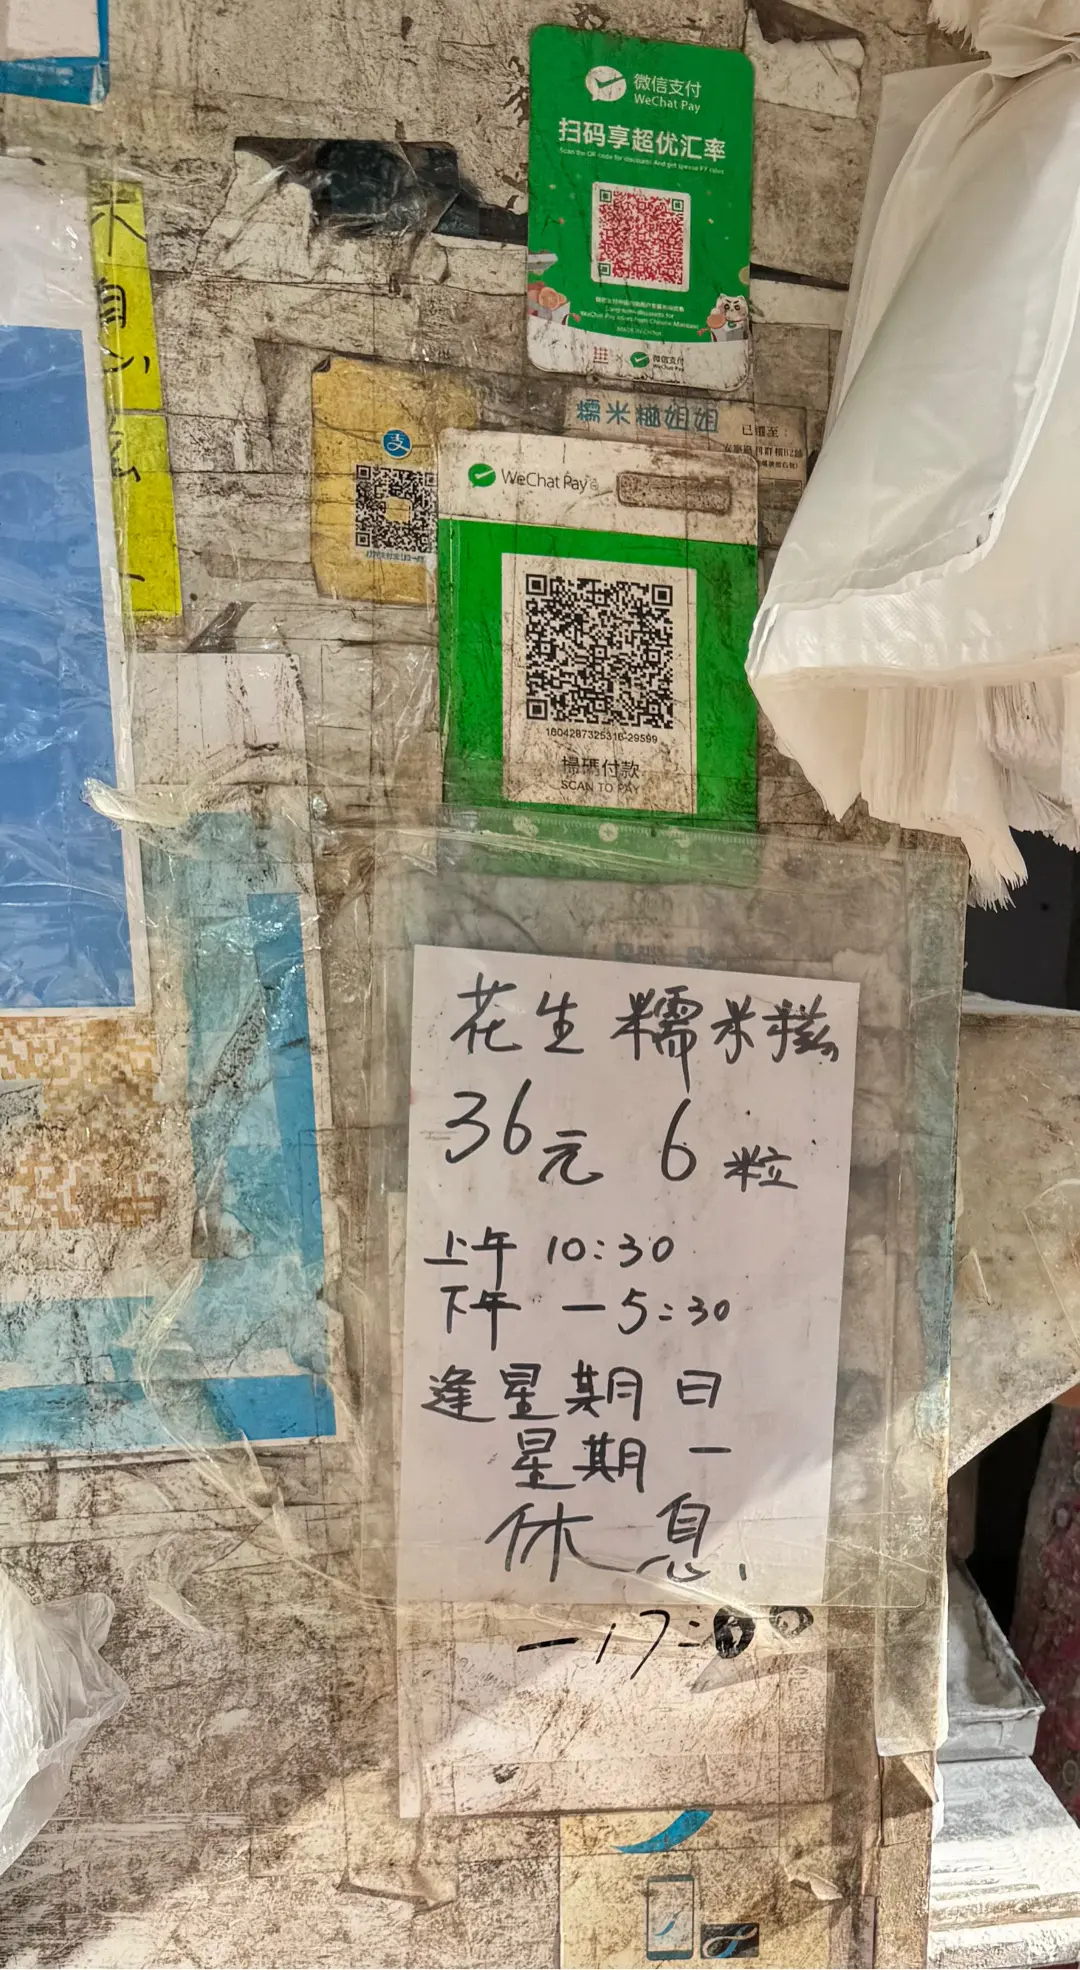 微信支付
WeChat Pay
扫码享超优汇率
Scan the QR code for discounts! And get special FX rates
WeChat Pay
糯米糍姐姐
已遷至：
WeChat Pay
支
1604287325316-29599
掃碼付款
SCAN TO PAY
花生 糯米糍
36元 6粒
上午 10:30
下午 — 5:30
逢星期日
星期一
休息.
—17:00